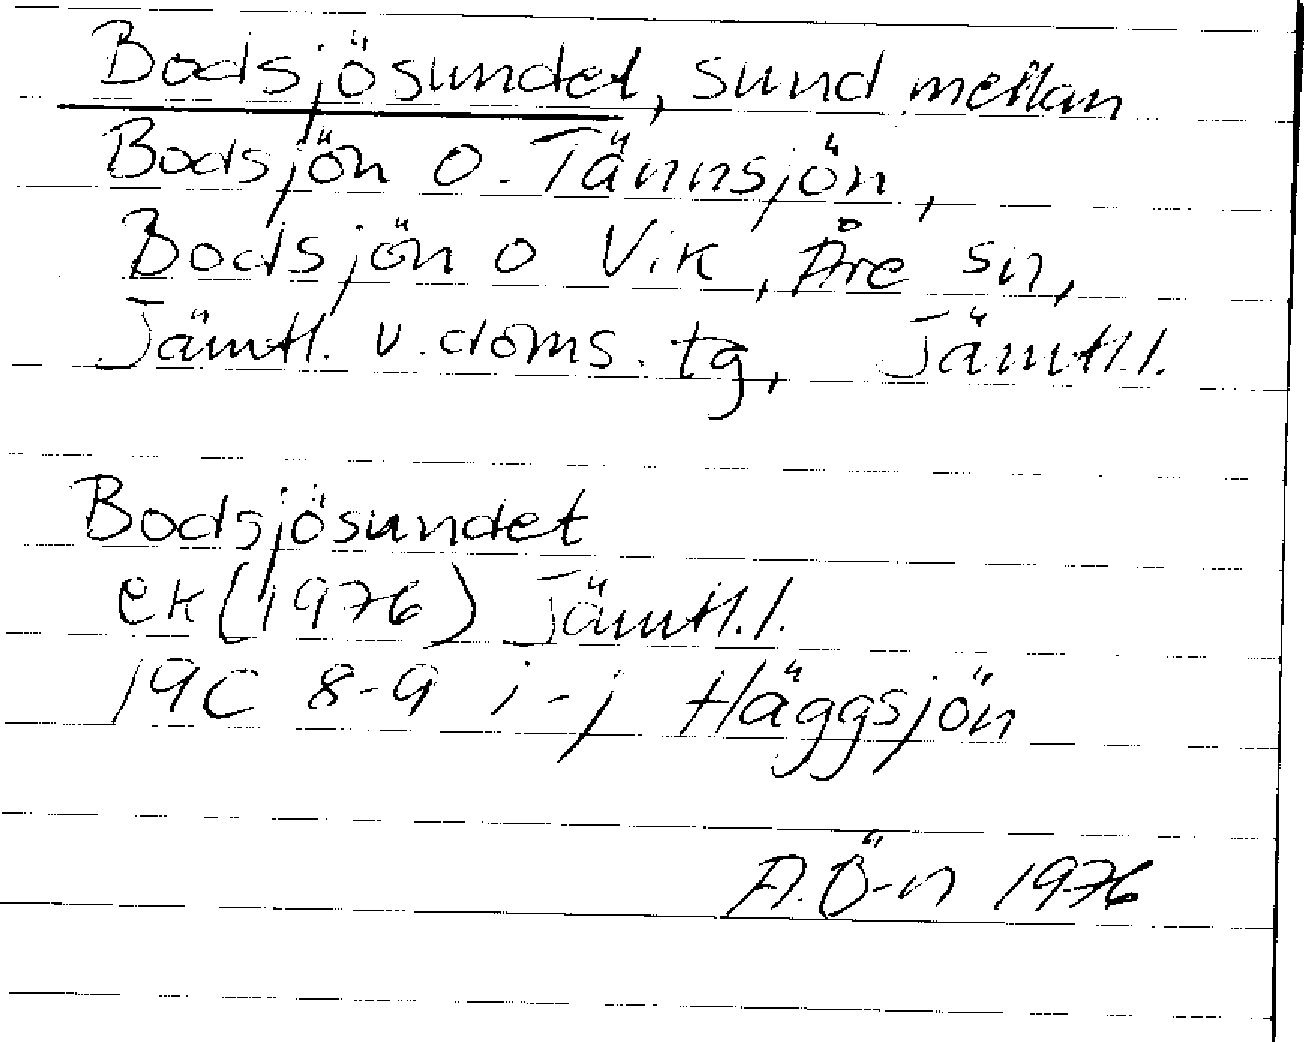 Bodsjösundet, sund mellan
Bodsjön o. Tännsjön,
Bodsjön o Vik, Åre sn,
Jämtl. v. doms. tg, Jämtl.l.
Bodsjösundet
ek (1976) Jämtl.l.
19C 8-9 i-j Häggsjön
A.Ö-n 1976